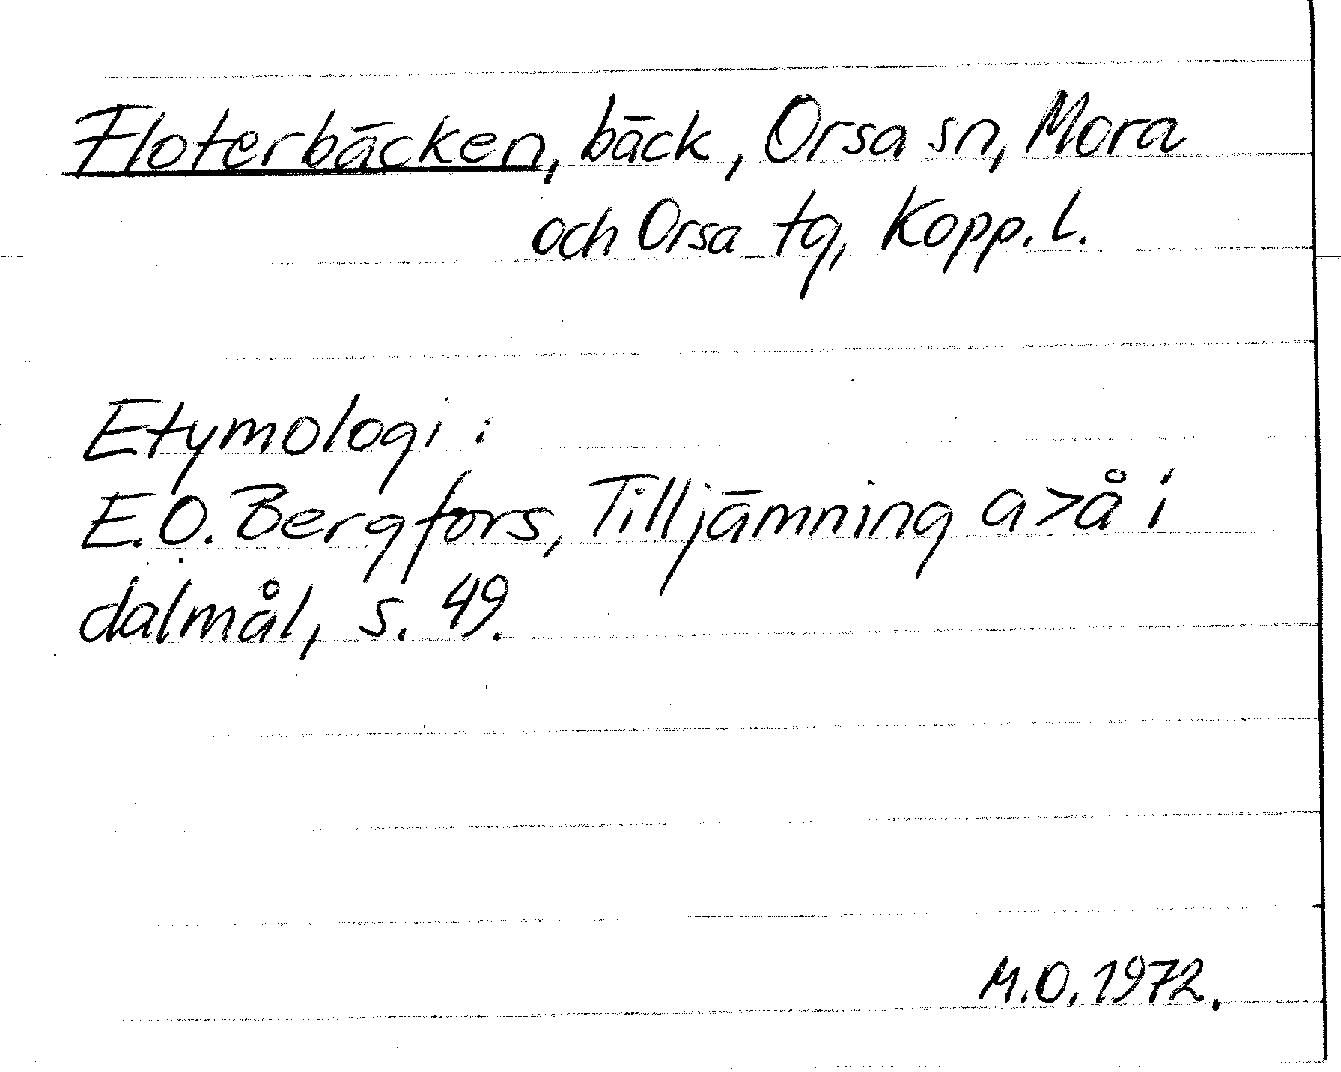 Floterbäcken, bäck, Orsa sn, Mora
och Orsa tg, Kopp. l.
Etymologi:
E.O. Bergfors, Tilljämning a>å i
dalmål, s. 49.
M.O. 1972.